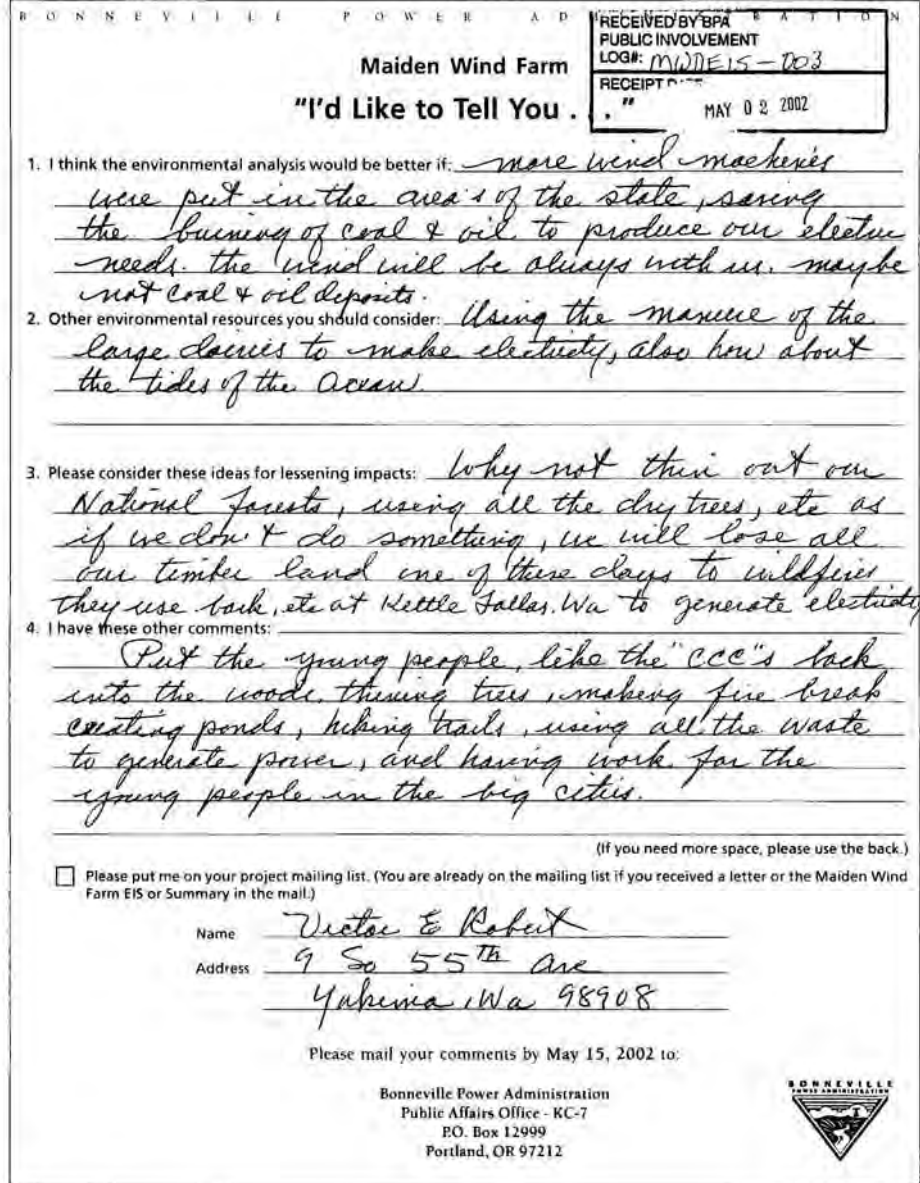 BONNEVILLE POWER AD RATION
RECEIVED BY BPA
PUBLIC INVOLVEMENT
LOG#: MWDEIS-003
RECEIPT
MAY 02 2002
Maiden Wind Farm
"I'd Like to Tell You . . ."
1. I think the environmental analysis would be better if: more wind machenes
were put in the area's of the state, saving
the burning of coal & oil to produce our electric
needs. the wind will be always with us. maybe
not coal & oil deposits.
2. Other environmental resources you should consider: Using the manure of the
large dairies to make electricity, also how about
the tides of the Ocean.
3. Please consider these ideas for lessening impacts: Why not thin out our
National forests, using all the dry trees, etc as
if we don't do something, we will lose all
our timber land one of these days to wildfires
they use bark, etc at Kettle Fallas, Wa to generate electricity
4. I have these other comments:
Put the young people, like the "CCC"s back
into the woods, thining trees, making fire break
creating ponds, hiking trails, using all the waste
to generate power, and having work for the
young people in the big cities.
(If you need more space, please use the back.)
Please put me on your project mailing list. (You are already on the mailing list if you received a letter or the Maiden Wind
Farm EIS or Summary in the mail.)
Name Victor E Robert
Address 9 So 55th Ave
Yakima, Wa 98908
Please mail your comments by May 15, 2002 to:
Bonneville Power Administration
Public Affairs Office - KC-7
P.O. Box 12999
Portland, OR 97212
BONNEVILLE
POWER ADMINISTRATION